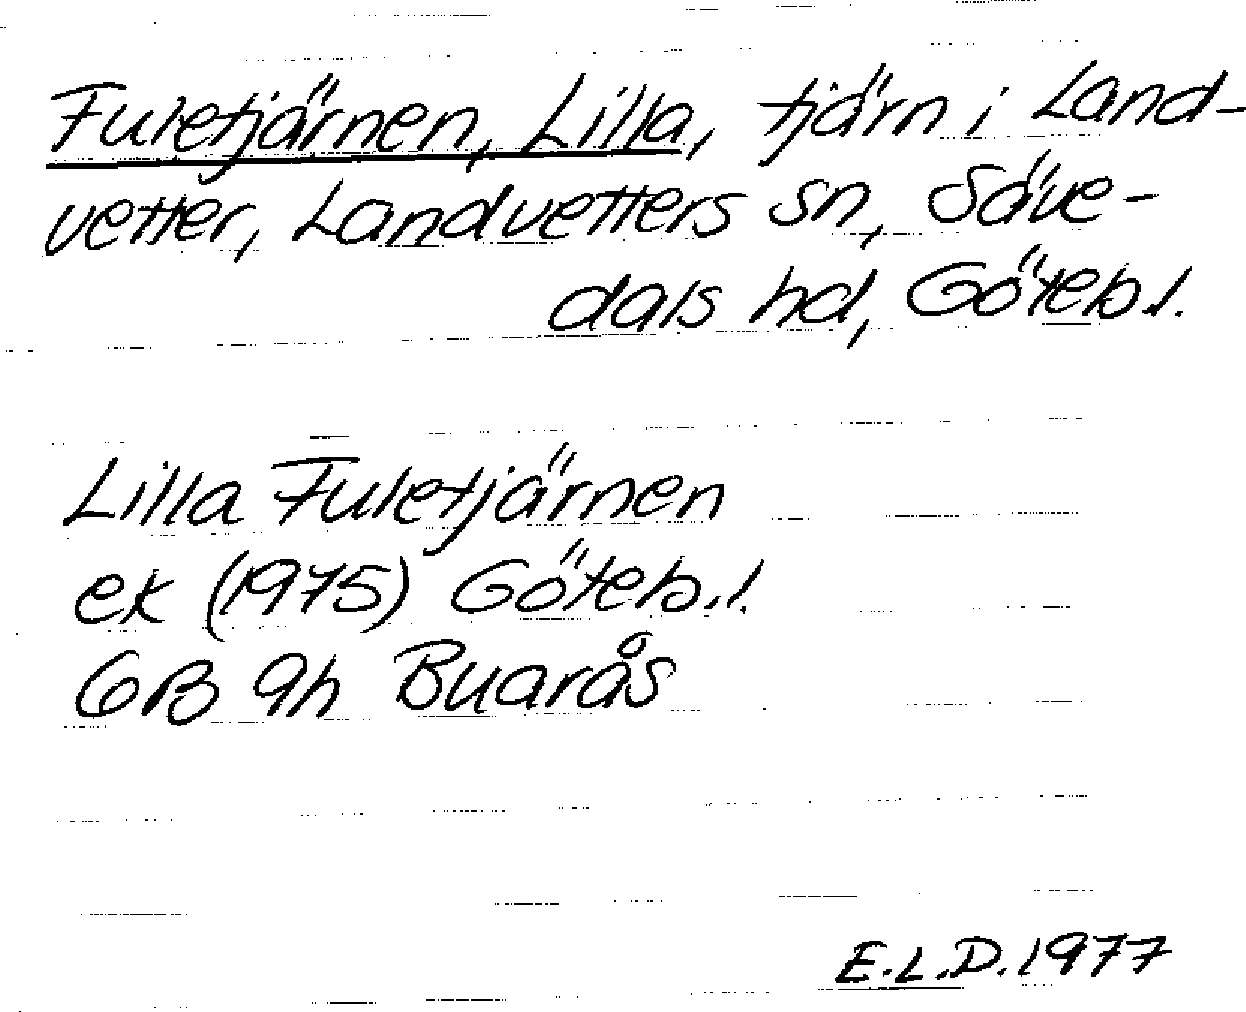 Fuletjärnen, Lilla, tjärn i Land-
vetter, Landvetters sn, Säve-
dals hd, Göteb.l.
Lilla Fuletjärnen
ek (1975) Göteb.l.
GB 9h Buarås
E.L.D. 1977